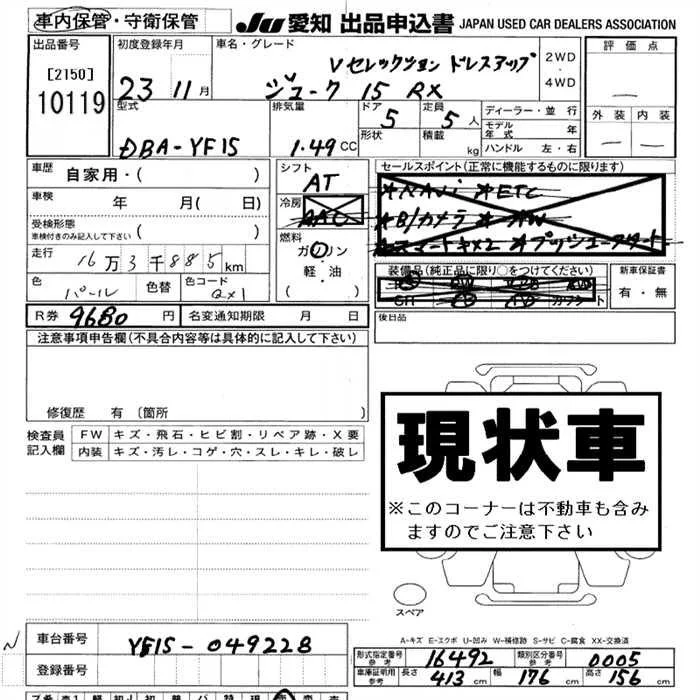 車内保管・守衛保管 JU 愛知 出品申込書 JAPAN USED CAR DEALERS ASSOCIATION
出品番号 初度登録年月 車名・グレード 評価点
[2150] Vセレクション ドレスアップ 2WD・4WD
10119 23 11月 ジューク 15 RX
型式 排気量 ドア 定員 ディーラー・並行 外装 内装
DBA-YF15 1.49CC 5 5人 モデル年式
形状 積載 kg ハンドル 左・右
車歴 自家用・( ) シフト AT セールスポイント(正常に機能するものに限ります)
車検 年 月( 日) 冷房 AAC ★NAVi ★ETC
受検形態 ★B/カメラ ★AW
車検付きのみ記入して下さい ( ) 燃料 ガソリン ★スマートキーx2 ★プッシュスタート
走行 16万3千885km 軽・油 ( ) 装備品(純正品に限り○をつけてください) 新車保証書
色 パール 色替 色コード QX1 有・無
R券 9680円 名変通知期限 月 日 後日品
注意事項申告欄(不具合内容等は具体的に記入して下さい)
修復歴 有 〔箇所
検査員記入欄 FW キズ・飛石・ヒビ割・リペア跡・X要
内装 キズ・汚レ・コゲ・穴・スレ・キレ・破レ
現状車
※このコーナーは不動車も含み
ますのでご注意下さい
スペア
A-キズ E-エクボ U-凹み W-補修跡 S-サビ C-腐食 XX-交換済
N 車台番号 YF15-049228
登録番号
型式指定番号 参考 16492 類別区分番号 参考 0005
車庫証明用 参考 長さ 413cm 幅 176cm 高さ 156cm